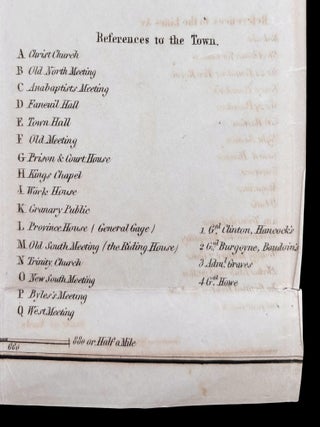 References to the Town.
A Christ Church
B Old North Meeting
C Anabaptists Meeting
D Faneuil Hall
E Town Hall
F Old Meeting
G Prison & Court House
H Kings Chapel
I Work House
K Granary Public
L Province House (General Gage)
M Old South Meeting (the Riding House)
N Trinity Church
O New South Meeting
P Byles's Meeting
Q West Meeting
1 Gl. Clinton, Hancock's
2 Gl. Burgoyne, Baudoin's
3 Adml. Graves
4 Gl. Howe
660
880 or Half a Mile